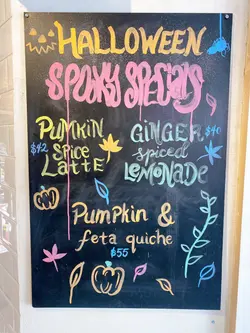 HALLOWEEN
SPOOKY SPECIALS
PUMKIN
$42 SPICE
LATTE
GINGER $40
spiced
LEMONADE
Pumpkin &
feta quiche
$55